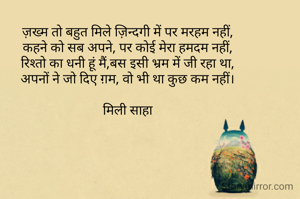 ज़ख्म तो बहुत मिले ज़िन्दगी में पर मरहम नहीं,
कहने को सब अपने, पर कोई मेरा हमदम नहीं,
रिश्तो का धनी हूं मैं,बस इसी भ्रम में जी रहा था,
अपनों ने जो दिए ग़म, वो भी था कुछ कम नहीं।
मिली साहा